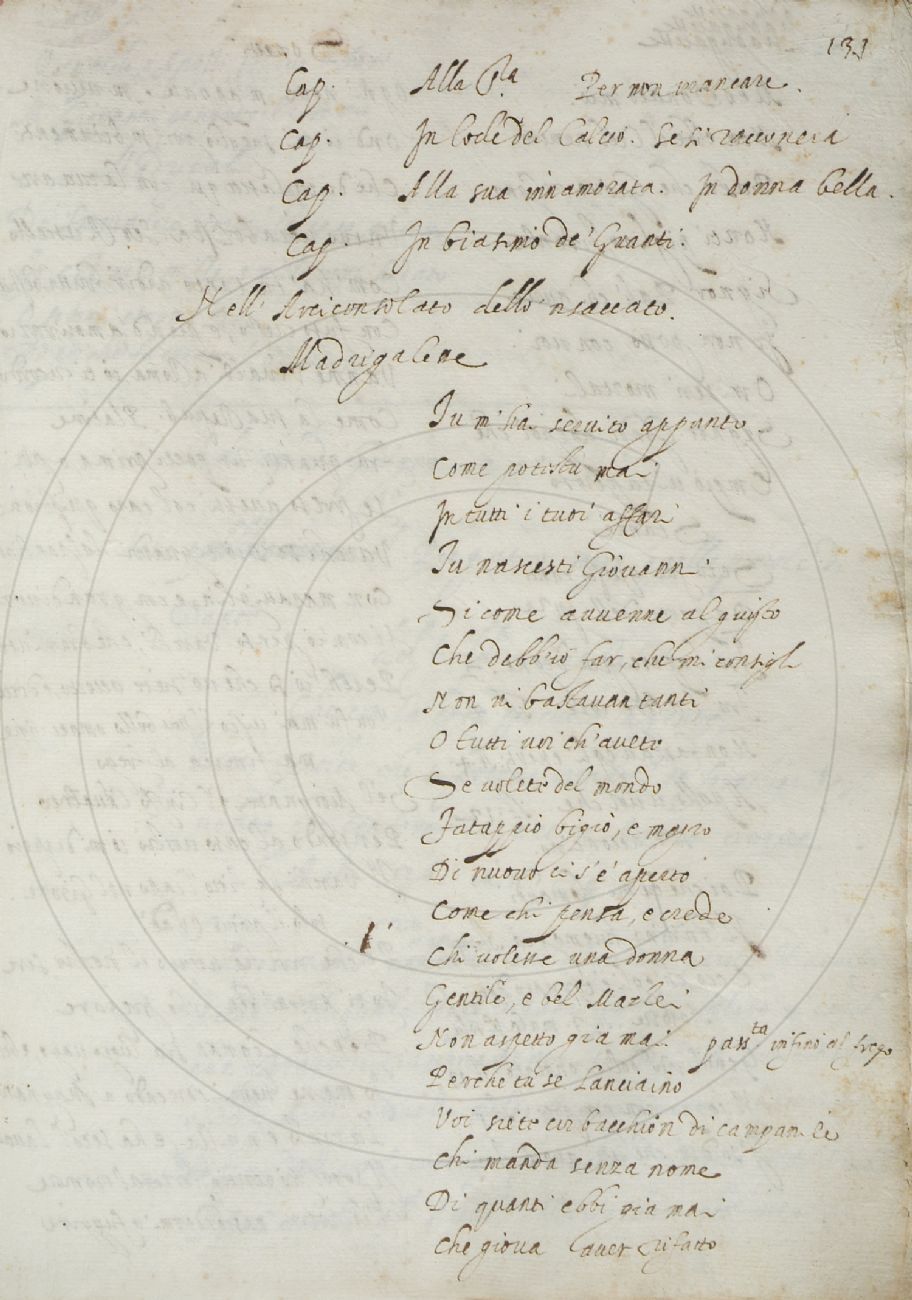 131
Cap. Alla S.ra Per non mancare.
Cap. In lode del Calcio. Se si
Cap. Alla sua innamorata. In donna bella.
Cap. In biasmo de' Guanti.
Nell' Arciconsolato dello 'nsaccato.
Madrigalene
Tu m'hai servito appunto.
Come potestu mai
In tutti i tuoi affari
Tu nascesti Giovanni
Si come avvenne al
Che debb'io far, che mi consigli
Non vi bastavan tanti
O tutti voi ch'avete
Se volete del mondo
bigio, e magro
Di nuovo ci s'è aperto
Come chi pensa, e crede
Chi volesse una donna
Gentile, e bel Marlei
Non aspetto gia mai pass.ta insino al
Perche tu se Lanciaino
Voi siete un bacchion di campanile
Chi manda senza nome
Di quanti ebbi gia mai
Che giova aver rifatto